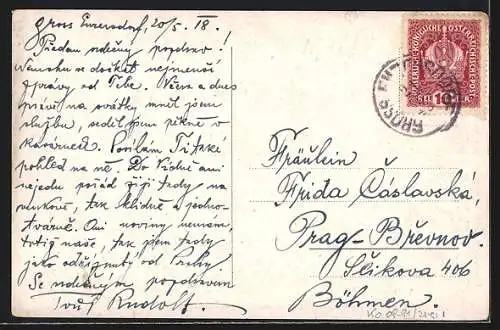 Gross Enzersdorf, 20/5. 18.
Předem srdečný pozdrav!
Nemohu se dočkat nejmenší
zprávy od Tebe. Včera a dnes
právě na svátky měl jsem
službu, seděl jsem pěkně v
kavárně. Posílám Ti také
pohled na ně. Do Vídně ani
nejedu pořád žiji tady na
venkově, tak klidně a jedno-
tvárně. Ani noviny nemám,
totiž naše, tak jsem tady
jako odříznutý od Prahy.
Se srdečným pozdravem
Tvůj Rudolf.
KAISERLICHE KÖNIGLICHE ÖSTERREICHISCHE POST
HELLER 10
GROSS ENZERSDORF
Fräulein
Frida Čáslavská,
Prag-Břevnov.
Slikova 406
Böhmen.